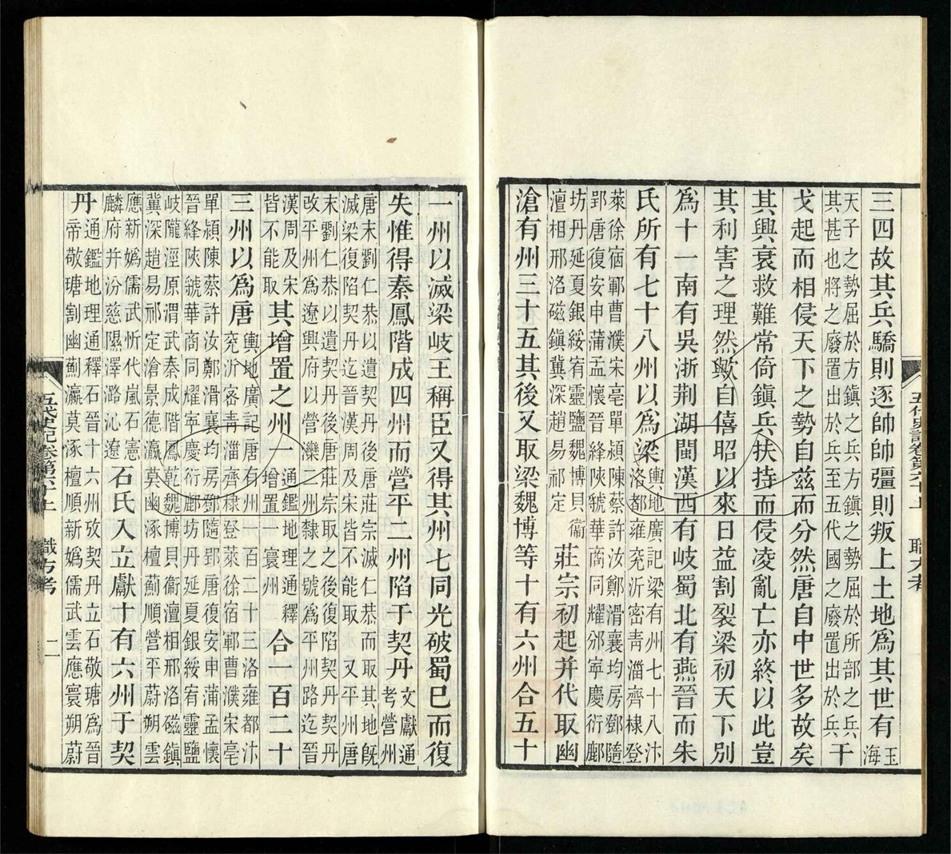 三四故其兵驕則逐帥帥彊則叛上土地爲其世有玉海
天子之勢屈於方鎮之兵方鎮之勢屈於所部之兵
其甚也將之廢置出於兵至五代國之廢置出於兵干
戈起而相侵天下之勢自茲而分然唐自中世多故矣
其興衰救難常倚鎮兵扶持而侵凌亂亡亦終以此豈
其利害之理然歟自僖昭以來日益割裂梁初天下別
爲十一南有吳浙荆湖閩漢西有岐蜀北有燕晉而朱
氏所有七十八州以爲梁輿地廣記梁有州七十八汴
洛都雍兖沂密青淄齊棣登
萊徐宿鄆曹濮宋亳單潁陳蔡許汝鄭滑襄均房鄧隨
郢唐復安申蒲孟懷晉絳陝虢華商同耀邠寧慶衍鄜
坊丹延夏銀綏宥靈鹽魏博貝衞
澶相邢洺磁鎮冀深趙易祁定莊宗初起并代取幽
滄有州三十五其後又取梁魏博等十有六州合五十
五代史記卷第六十上 職方考
一州以滅梁岐王稱臣又得其州七同光破蜀已而復
失惟得秦鳳階成四州而營平二州陷于契丹文獻通
考營州
唐末劉仁恭以遺契丹後唐莊宗滅仁恭而取其地旣
滅梁復陷契丹迄晉漢周及宋皆不能取 又平州唐
末劉仁恭以遺契丹後唐莊宗取之後復陷契丹
改平州爲遼興府以營灤二州隸之號爲平州路迄晉
漢周及宋
皆不能取其增置之州一通鑑地理通釋
增置一寰州合一百二十
三州以爲唐輿地廣記唐有州一百二十三洛雍都汴
兖沂密青淄齊棣登萊徐宿鄆曹濮宋亳
單潁陳蔡許汝鄭滑襄均房鄧隨郢唐復安申蒲孟懷
晉絳陝虢華商同耀寧慶衍鄜坊丹延夏銀綏宥靈鹽
岐隴涇原渭武秦成階鳳乾魏博貝衞澶相邢洺磁鎮
冀深趙易祁定滄景德瀛莫幽涿檀薊順營平蔚朔雲
應新嬀儒武忻代嵐石憲
麟府并汾慈隰澤潞沁遼石氏入立獻十有六州于契
丹通鑑地理通釋石晉十六州攷契丹立石敬瑭爲晉
帝敬瑭割幽薊瀛莫涿檀順新嬀儒武雲應寰朔蔚
五代史記卷第六十上 職方考 二